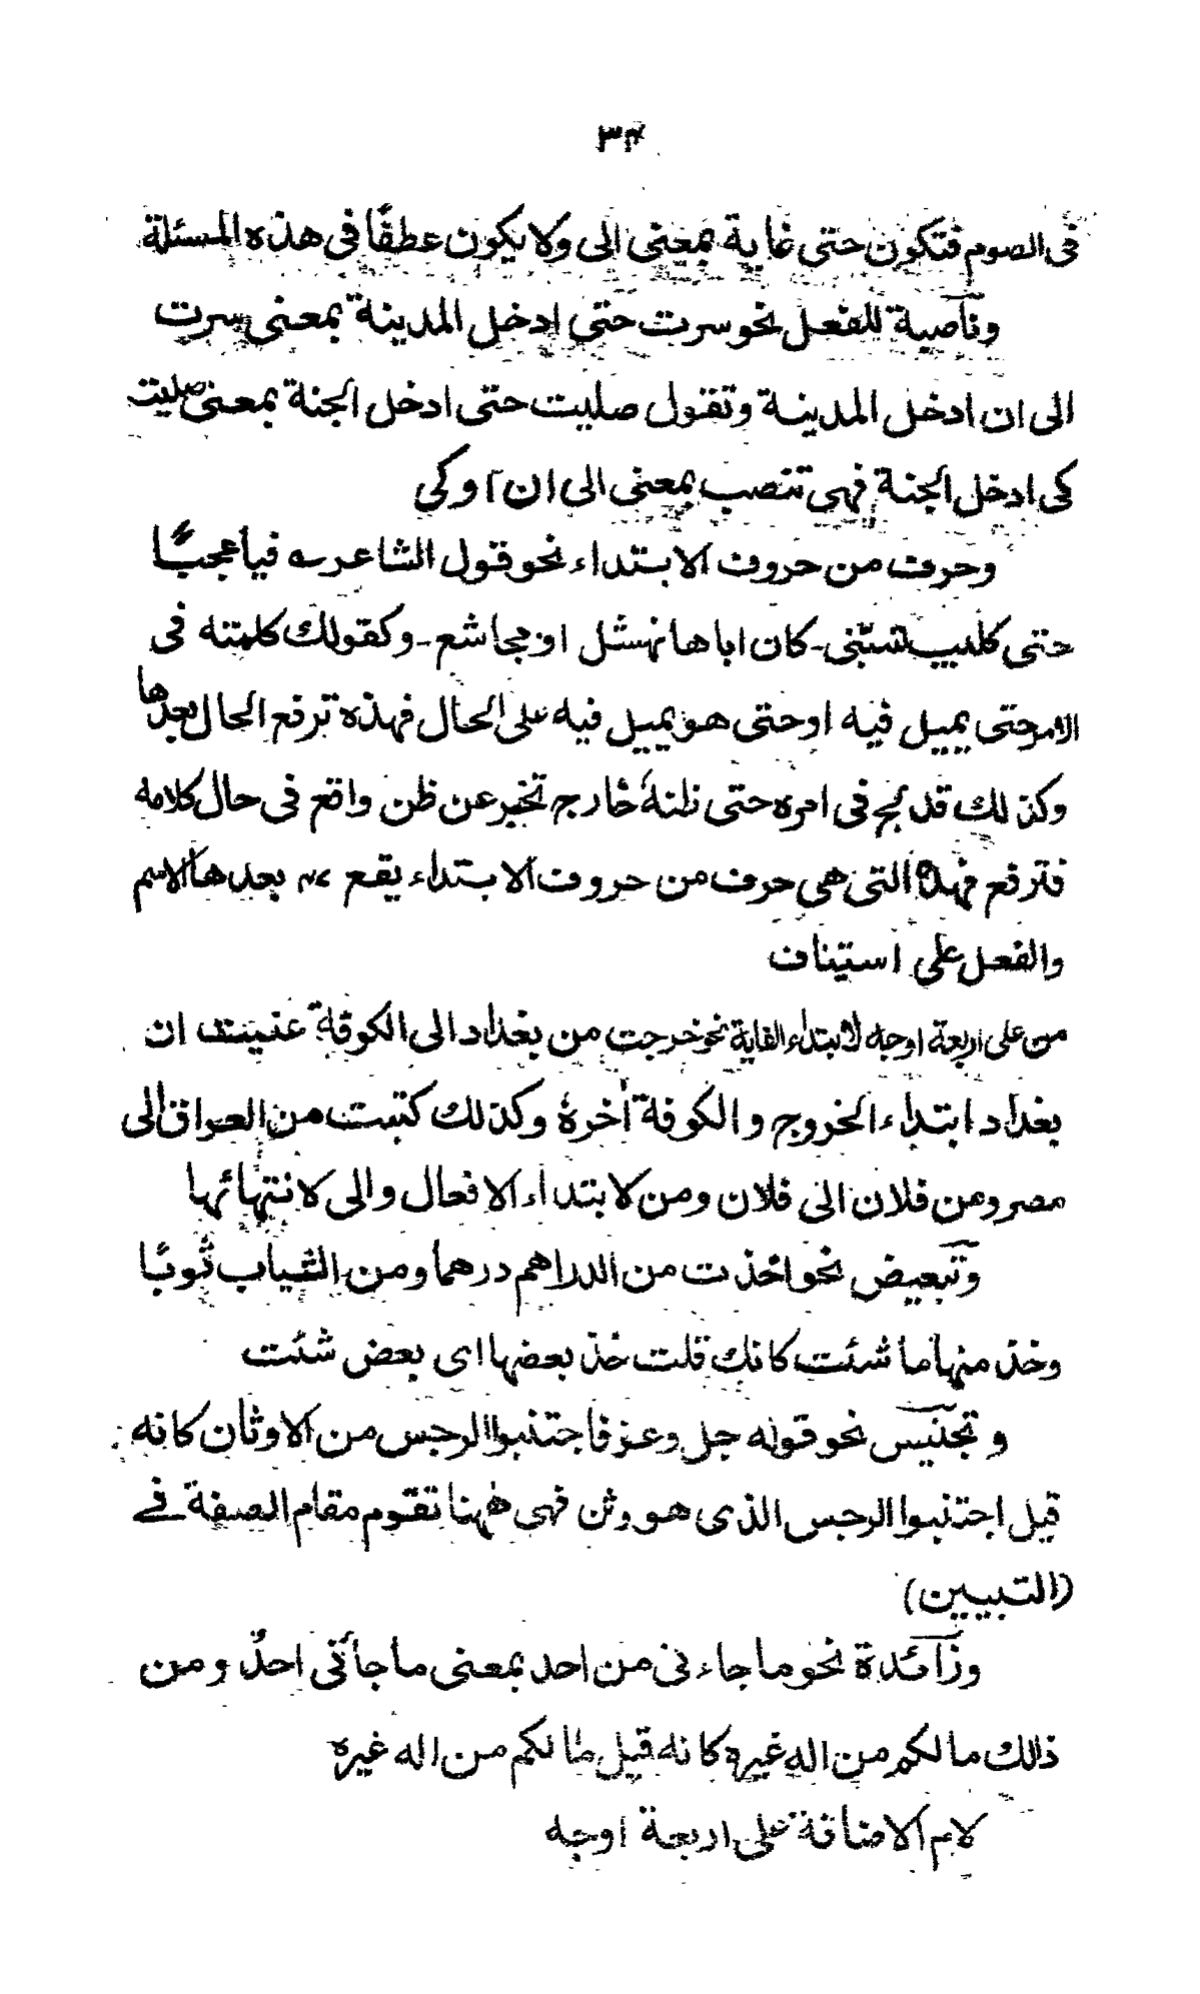 ٣٣
فى الصوم فتكون حتى غاية بمعنى الى ولا يكون عطفًا فى هذه المسئلة
وناصبة للفعل نحو سرت حتى ادخل المدينة بمعنى سرت
الى ان ادخل المدينة وتقول صليت حتى ادخل الجنة بمعنى صليت
كى ادخل الجنة فهى تنصب بمعنى الى ان او كى
وحرف من حروف الابتداء نحو قول الشاعر ؎ فيا عجبًا
حتى كليب تسبّنى - كان اباها نهشل او مجاشع - وكقولك كلمته فى
الامر حتى يميل فيه او حتى هو يميل فيه على الحال فهذه ترفع الحال بعدها
وكذلك قد لج فى امره حتى نظنهٗ خارج تخبر عن ظن واقع فى حال كلامه
فترفع فهذه التى هى حرف من حروف الابتداء يقع بعدها الاسم
والفعل على استيناف
من على اربعة اوجه لابتداء الغاية نحو خرجت من بغداد الى الكوفة عنيت ان
بغداد ابتداء الخروج والكوفة أخرهٗ وكذلك كتبت من العراق الى
مصر ومن فلان الى فلان ومن لابتداء الافعال والى لانتهائها
وتبعيض نحو اخذت من الدراهم درهما ومن الثياب ثوبًا
وخذ منها ما شئت كانك قلت خذ بعضها اى بعض شئت
وتجنيس نحو قوله جل وعز فاجتنبوا الرجس من الاوثان كانه
قيل اجتنبوا الرجس الذى هو وثن فهى ههنا تقوم مقام الصفة فے
(التبيين)
وزآئدة نحو ما جاءنى من احد بمعنى ما جأنى احدٌ ومن
ذلك ما لكم من اله غيره كانه قيل ما لكم من اله غيره
لام الاضافة على اربعة اوجه